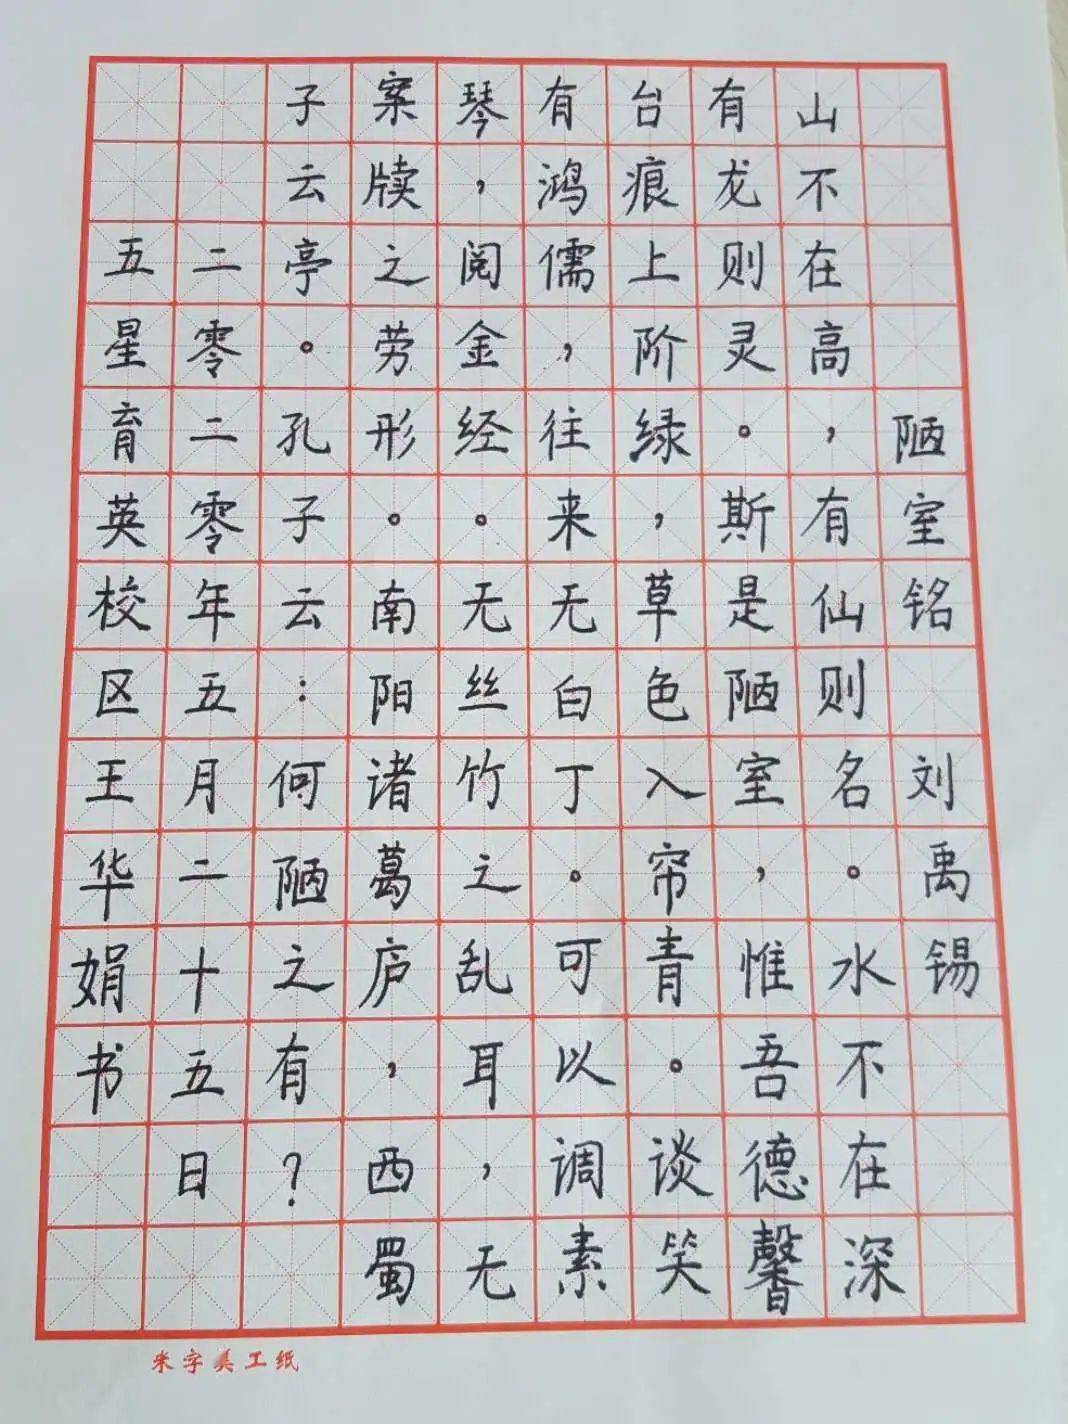 陋室铭 刘禹锡
山不在高，有仙则名。水不在深
有龙则灵。斯是陋室，惟吾德馨
台痕上阶绿，草色入帘青。谈笑
有鸿儒，往来无白丁。可以调素
琴，阅金经。无丝竹之乱耳，无
案牍之劳形。南阳诸葛庐，西蜀
子云亭。孔子云：何陋之有？
二零二零年五月二十五日
五星育英校区王华娟书
米字美工纸